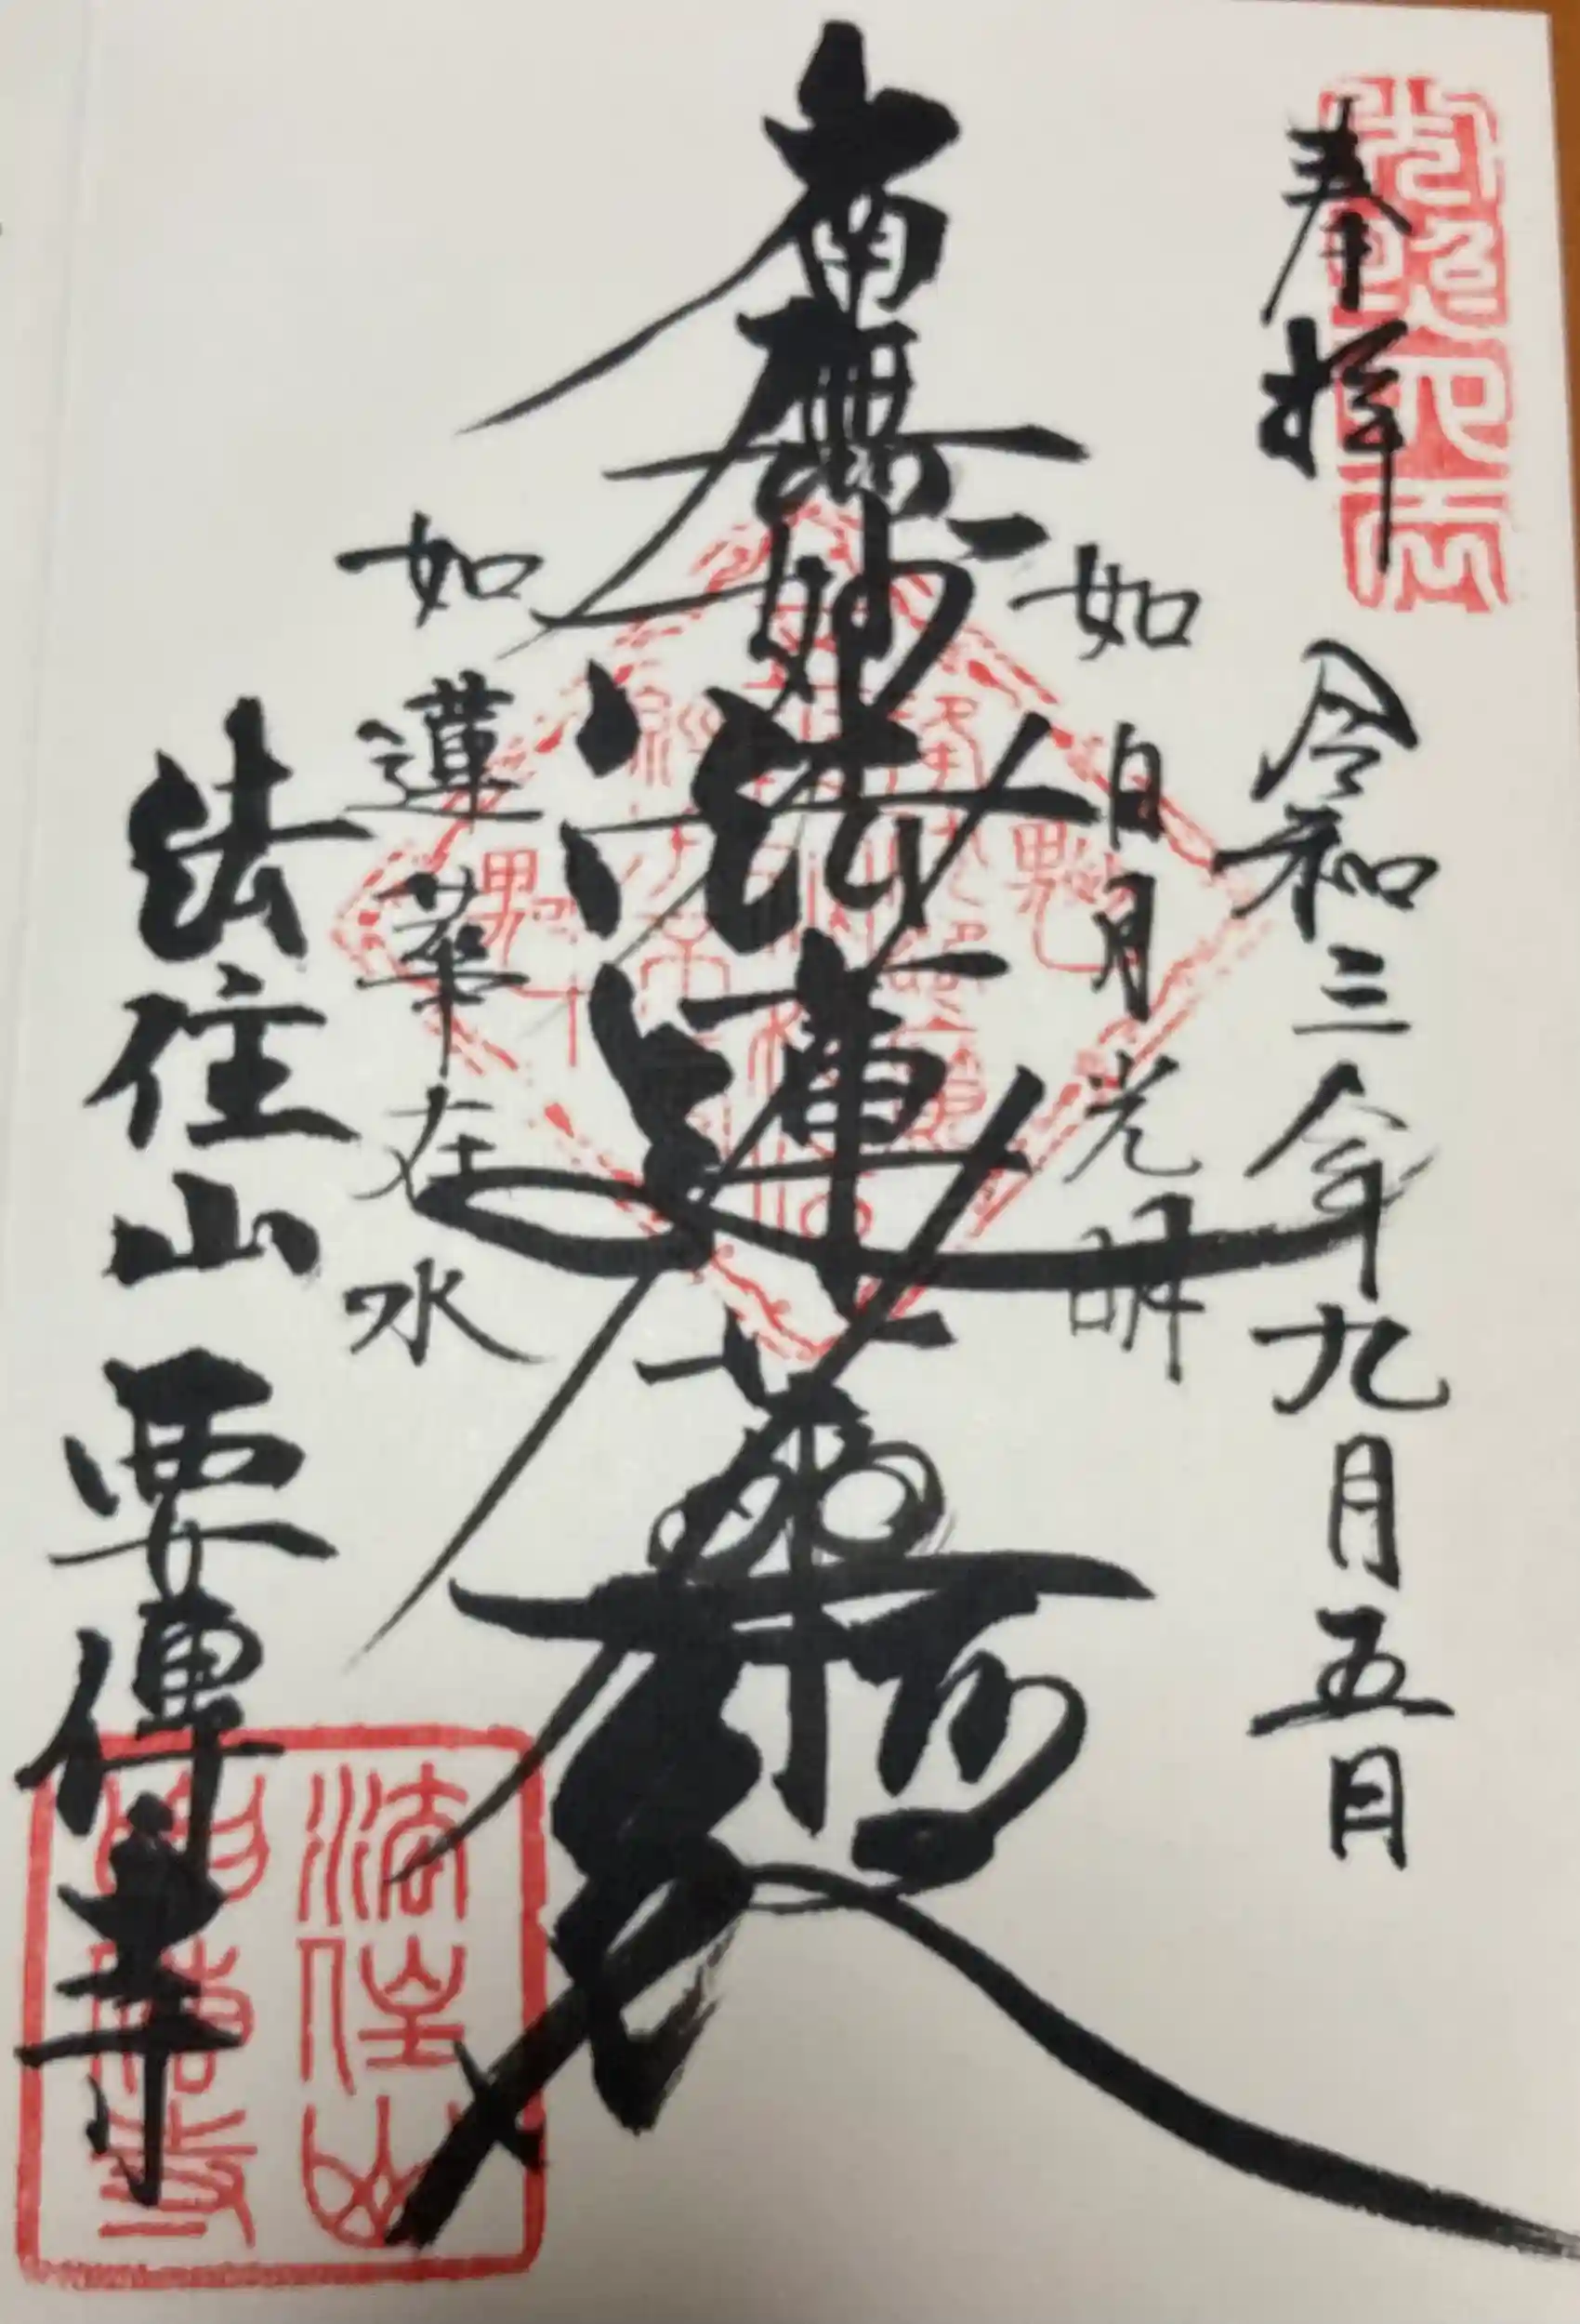 奉拝
令和三年九月五日
如日月光明
南無妙法蓮華経
如蓮華在水
法住山
要傳寺
法住山